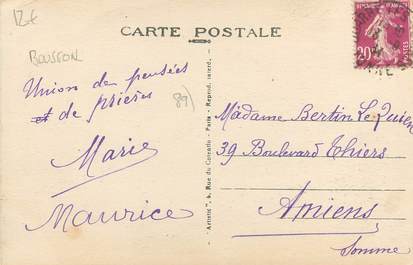 12€
CARTE POSTALE
BOUSSON
Union de pensées
et de prières
89)
Marie
Maurice
Madame Bertin Le Quien
39 Boulevard Thiers
Amiens
Somme
"Artistic", Rue du Conando - Paris - Reprod. interd.
20
POSTES